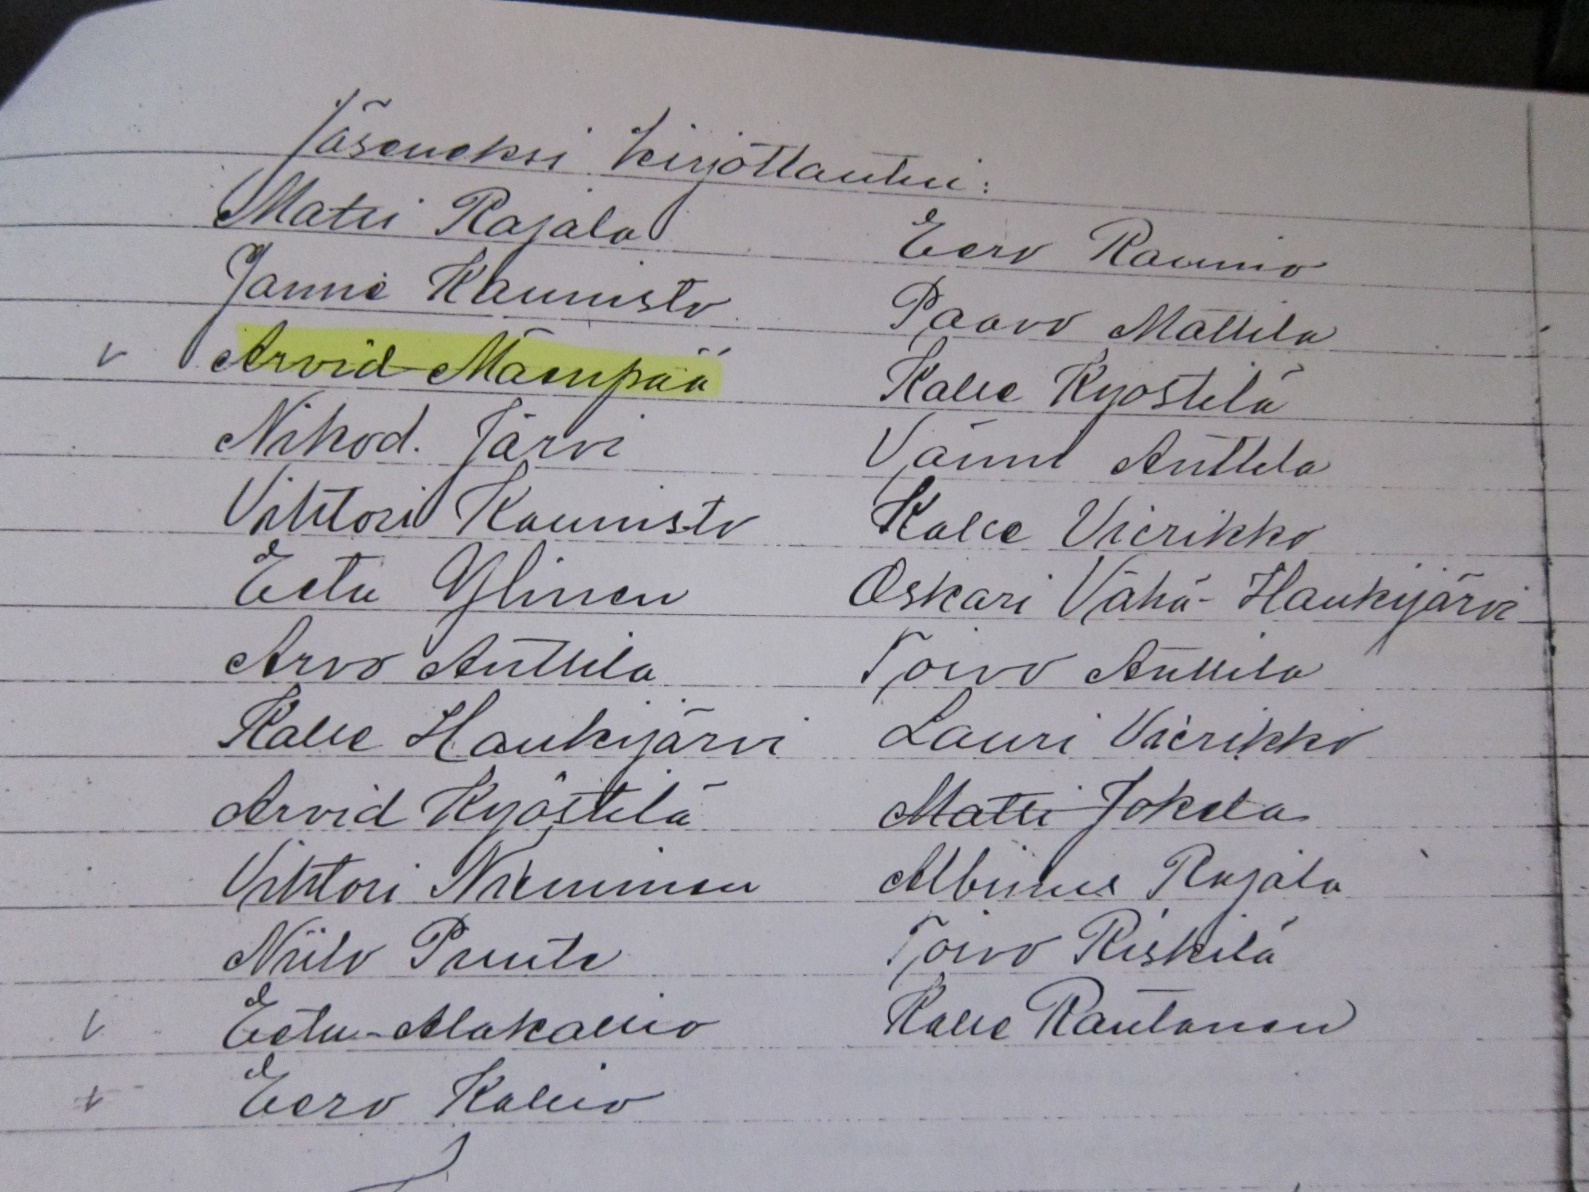 Jäseneksi kirjottautui:
Matti Rajala
Janne Kaunisto
Arvid Mäenpää
Nikod. Järvi
Vihtori Kaunisto
Eetu Ylinen
Arvo Anttila
Kalle Haukijärvi
Arvid Kyöstilä
Vihtori Nieminen
Niilo Puute
Eetu Alakallio
Eero Kallio
Eero Raunio
Paavo Mattila
Kalle Kyöstilä
Väinö Anttila
Kalle Vierikko
Oskari Vähä-Haukijärvi
Toivo Anttila
Lauri Vierikko
Matti Jokela
Albinus Rajala
Toivo Riskilä
Kalle Rautanen